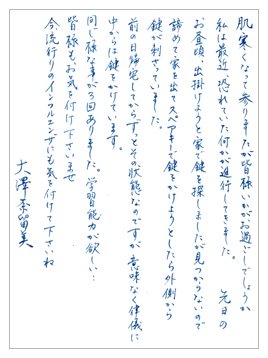 肌寒くなって参りましたが皆様いかがお過しでしょうか
私は最近恐れていた何かが進行してきました。 先日の
お昼頃、出掛けようと家で鍵を探しましたが見つからないので
諦めて家を出てスペアキーで鍵をかけようとしたら外側から
鍵が刺さっていました。
前の日帰宅してからずっとその状態なのですが意味なく律儀に
中からは鍵をかけています。
同じ様な事が3回ありました。学習能力が欲しい…
皆様もお気を付け下さいませ
今流行りのインフルエンザにも気を付けて下さいね
大澤奈留美